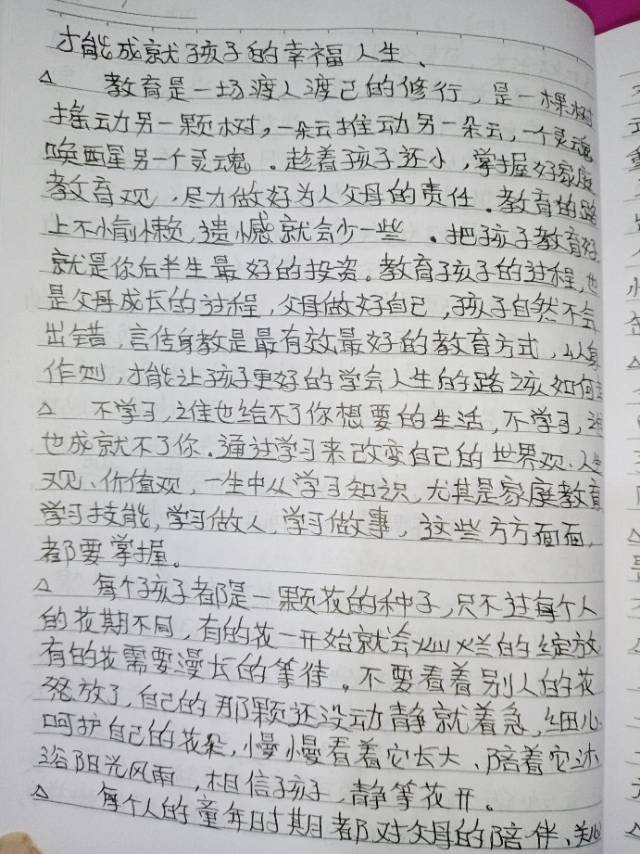 才能成就孩子的幸福人生、
△ 教育是一场渡人渡己的修行，是一棵树
摇动另一颗树，一朵云推动另一朵云，一个灵魂
唤醒另一个灵魂。趁着孩子还小，掌握好家庭
教育观，尽力做好为人父母的责任。教育的路
上不偷懒，遗憾就会少一些。把孩子教育好，
就是你后半生最好的投资。教育孩子的过程，也
是父母成长的过程，父母做好自己，孩子自然不会
出错，言传身教是最有效最好的教育方式，以身
作则，才能让孩子更好的学会人生的路该如何
△ 不学习，谁也给不了你想要的生活，不学习，谁
也成就不了你。通过学习来改变自己的世界观、人生
观、价值观，一生中从学习知识，尤其是家庭教育
学习技能，学习做人，学习做事，这些方方面面，
都要掌握。
△ 每个孩子都是一颗花的种子，只不过每个人
的花期不同，有的花一开始就会灿烂的绽放
有的花需要漫长的等待。不要看着别人的花
怒放了，自己的那颗还没动静就着急，细心
呵护自己的花朵，慢慢看着它长大、陪着它沐
浴阳光风雨，相信孩子，静等花开。
△ 每个人的童年时期都对父母的陪伴、关心